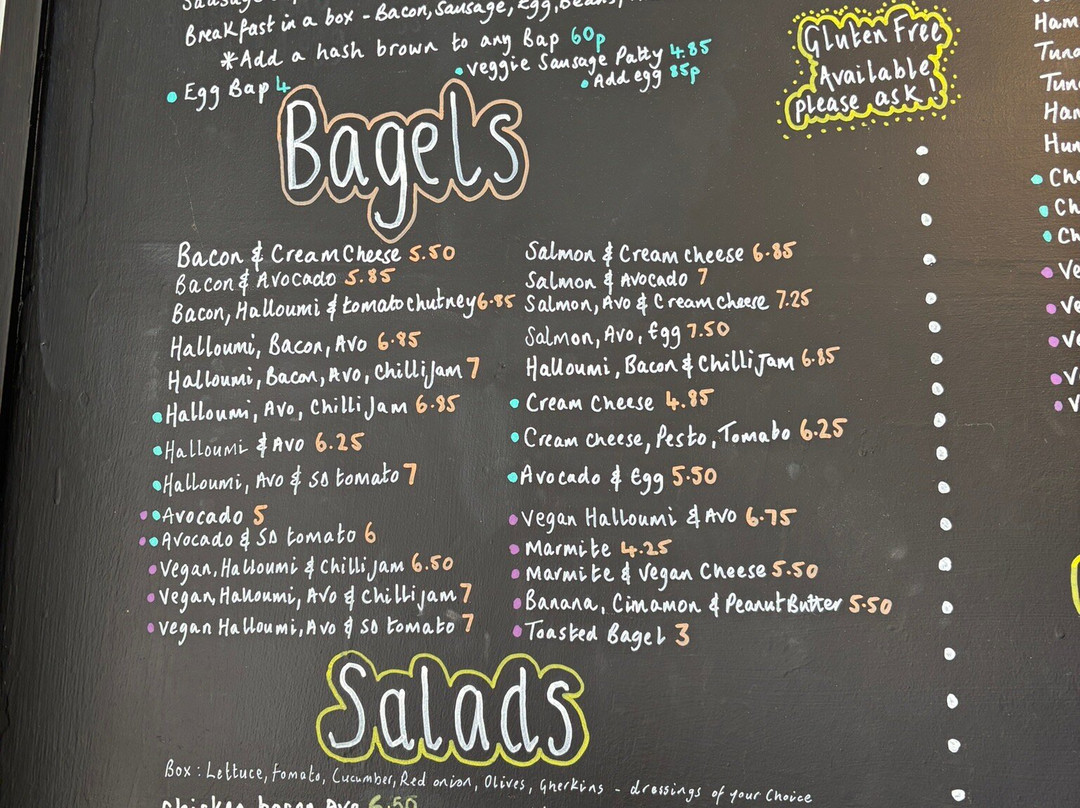 Breakfast in a box - Bacon, Sausage, Egg, Beans,
*Add a hash brown to any Bap 60p
Veggie Sausage Patty 4.85
Egg Bap 4
Add egg 85p
Gluten Free
Available
please ask!
Bagels
Bacon & Cream Cheese 5.50
Bacon & Avocado 5.85
Bacon, Halloumi & tomato chutney 6.85
Halloumi, Bacon, Avo 6.85
Halloumi, Bacon, Avo, Chilli Jam 7
Halloumi, Avo, Chilli Jam 6.85
Halloumi & Avo 6.25
Halloumi, Avo & SD tomato 7
Avocado 5
Avocado & SD tomato 6
Vegan, Halloumi & Chilli jam 6.50
Vegan, Halloumi, Avo & Chilli jam 7
Vegan Halloumi, Avo & SD tomato 7
Salmon & Cream cheese 6.85
Salmon & Avocado 7
Salmon, Avo & Cream cheese 7.25
Salmon, Avo, Egg 7.50
Halloumi, Bacon & Chilli Jam 6.85
Cream Cheese 4.85
Cream cheese, Pesto, Tomato 6.25
Avocado & Egg 5.50
Vegan Halloumi & Avo 6.75
Marmite 4.25
Marmite & Vegan Cheese 5.50
Banana, Cinnamon & Peanut Butter 5.50
Toasted Bagel 3
Salads
Box: Lettuce, Tomato, Cucumber, Red onion, Olives, Gherkins - dressings of your Choice
Ham